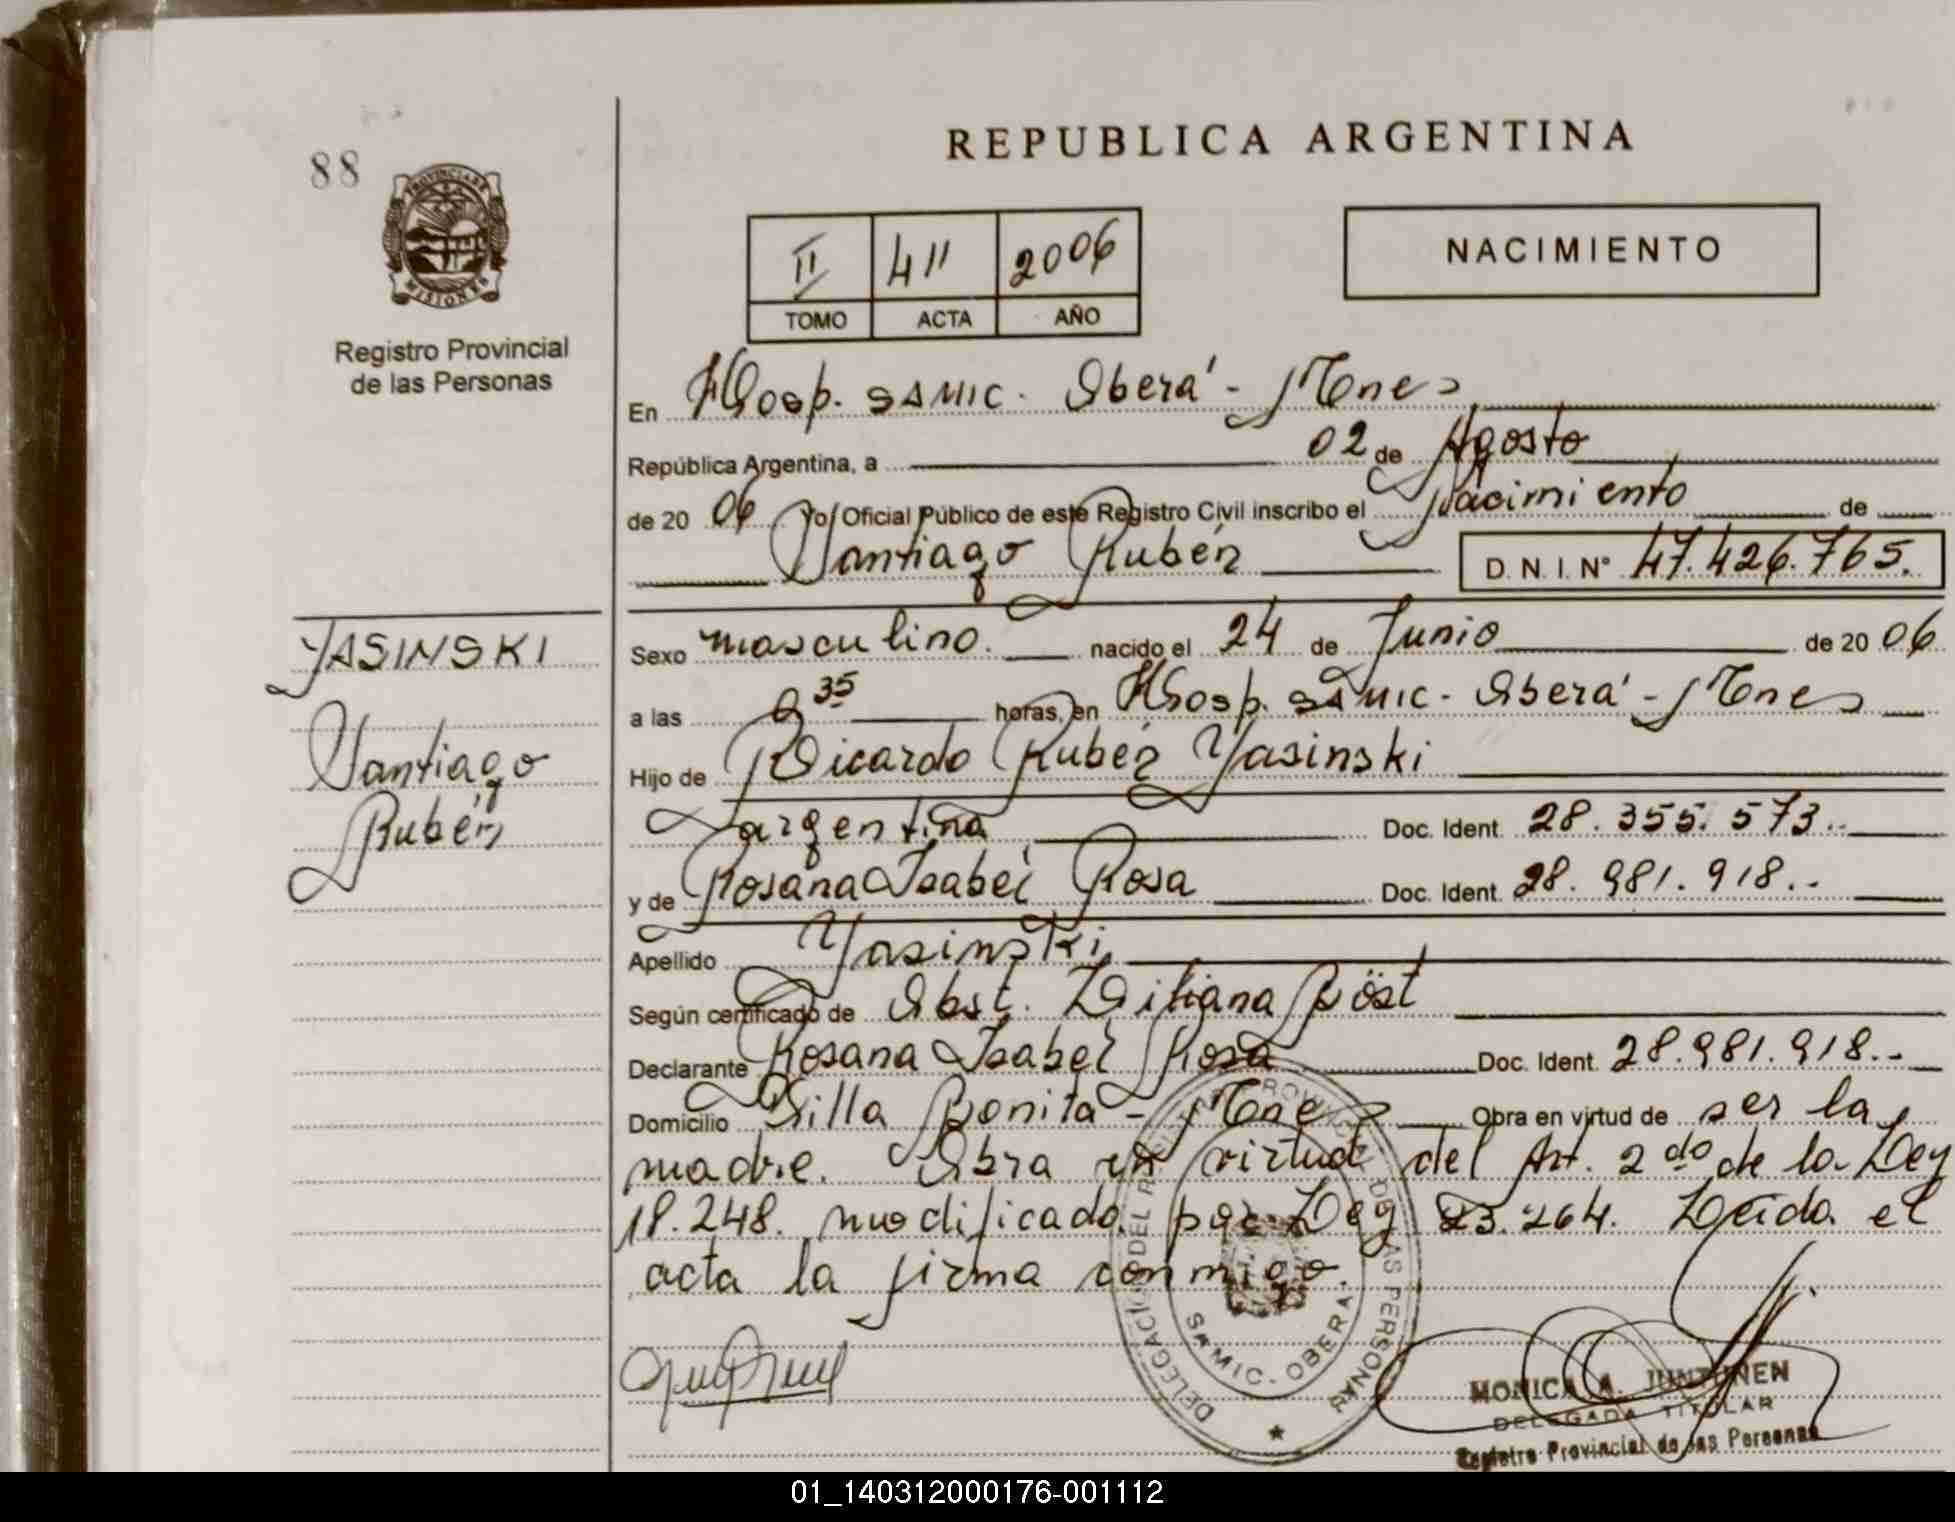 REPUBLICA ARGENTINA
88
PROVINCIA DE
MISIONES
Registro Provincial
de las Personas
II 411 2006
TOMO ACTA AÑO
NACIMIENTO
En Hosp. SAMIC. Oberá - Mnes
República Argentina, a 02 de Agosto
de 20 06 Yo, Oficial Público de este Registro Civil inscribo el Nacimiento de
Santiago Rubén D.N.I.N° 47.426.765.
YASINSKI
Santiago
Rubén
Sexo masculino. nacido el 24 de Junio de 20 06
a las 35 horas, en Hosp. SAMIC - Oberá - Mnes
Hijo de Ricardo Rubén Yasinski
argentina Doc. Ident. 28.355.573.
y de Rosana Isabel Rosa Doc. Ident. 28.981.918.-
Apellido Yasinski
Según certificado de Obst. Liliana Böst
Declarante Rosana Isabel Rosa Doc. Ident. 28.981.918.-
Domicilio Villa Bonita - Mnes Obra en virtud de ser la
madre. Obra en virtud del Art. 2do de la Ley
18.248. modificada por Ley 23.264. Leída el
acta la firma conmigo.
DELEGACION DEL REGISTRO PROVINCIAL DE LAS PERSONAS
SAMIC - OBERA
MONICA A. JUNTUNEN
DELEGADA TITULAR
Registro Provincial de las Personas
01_140312000176-001112